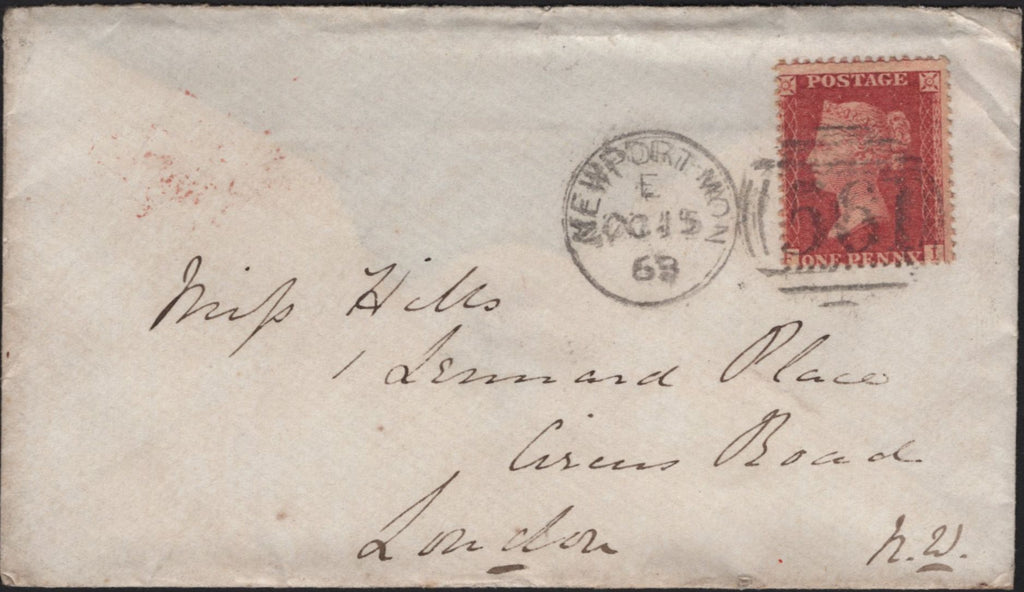 POSTAGE
ONE PENNY
NEWPORT-MON
E
OC 15
Miss Hills
1 Lennard Place
Circus Road
London
N.W.